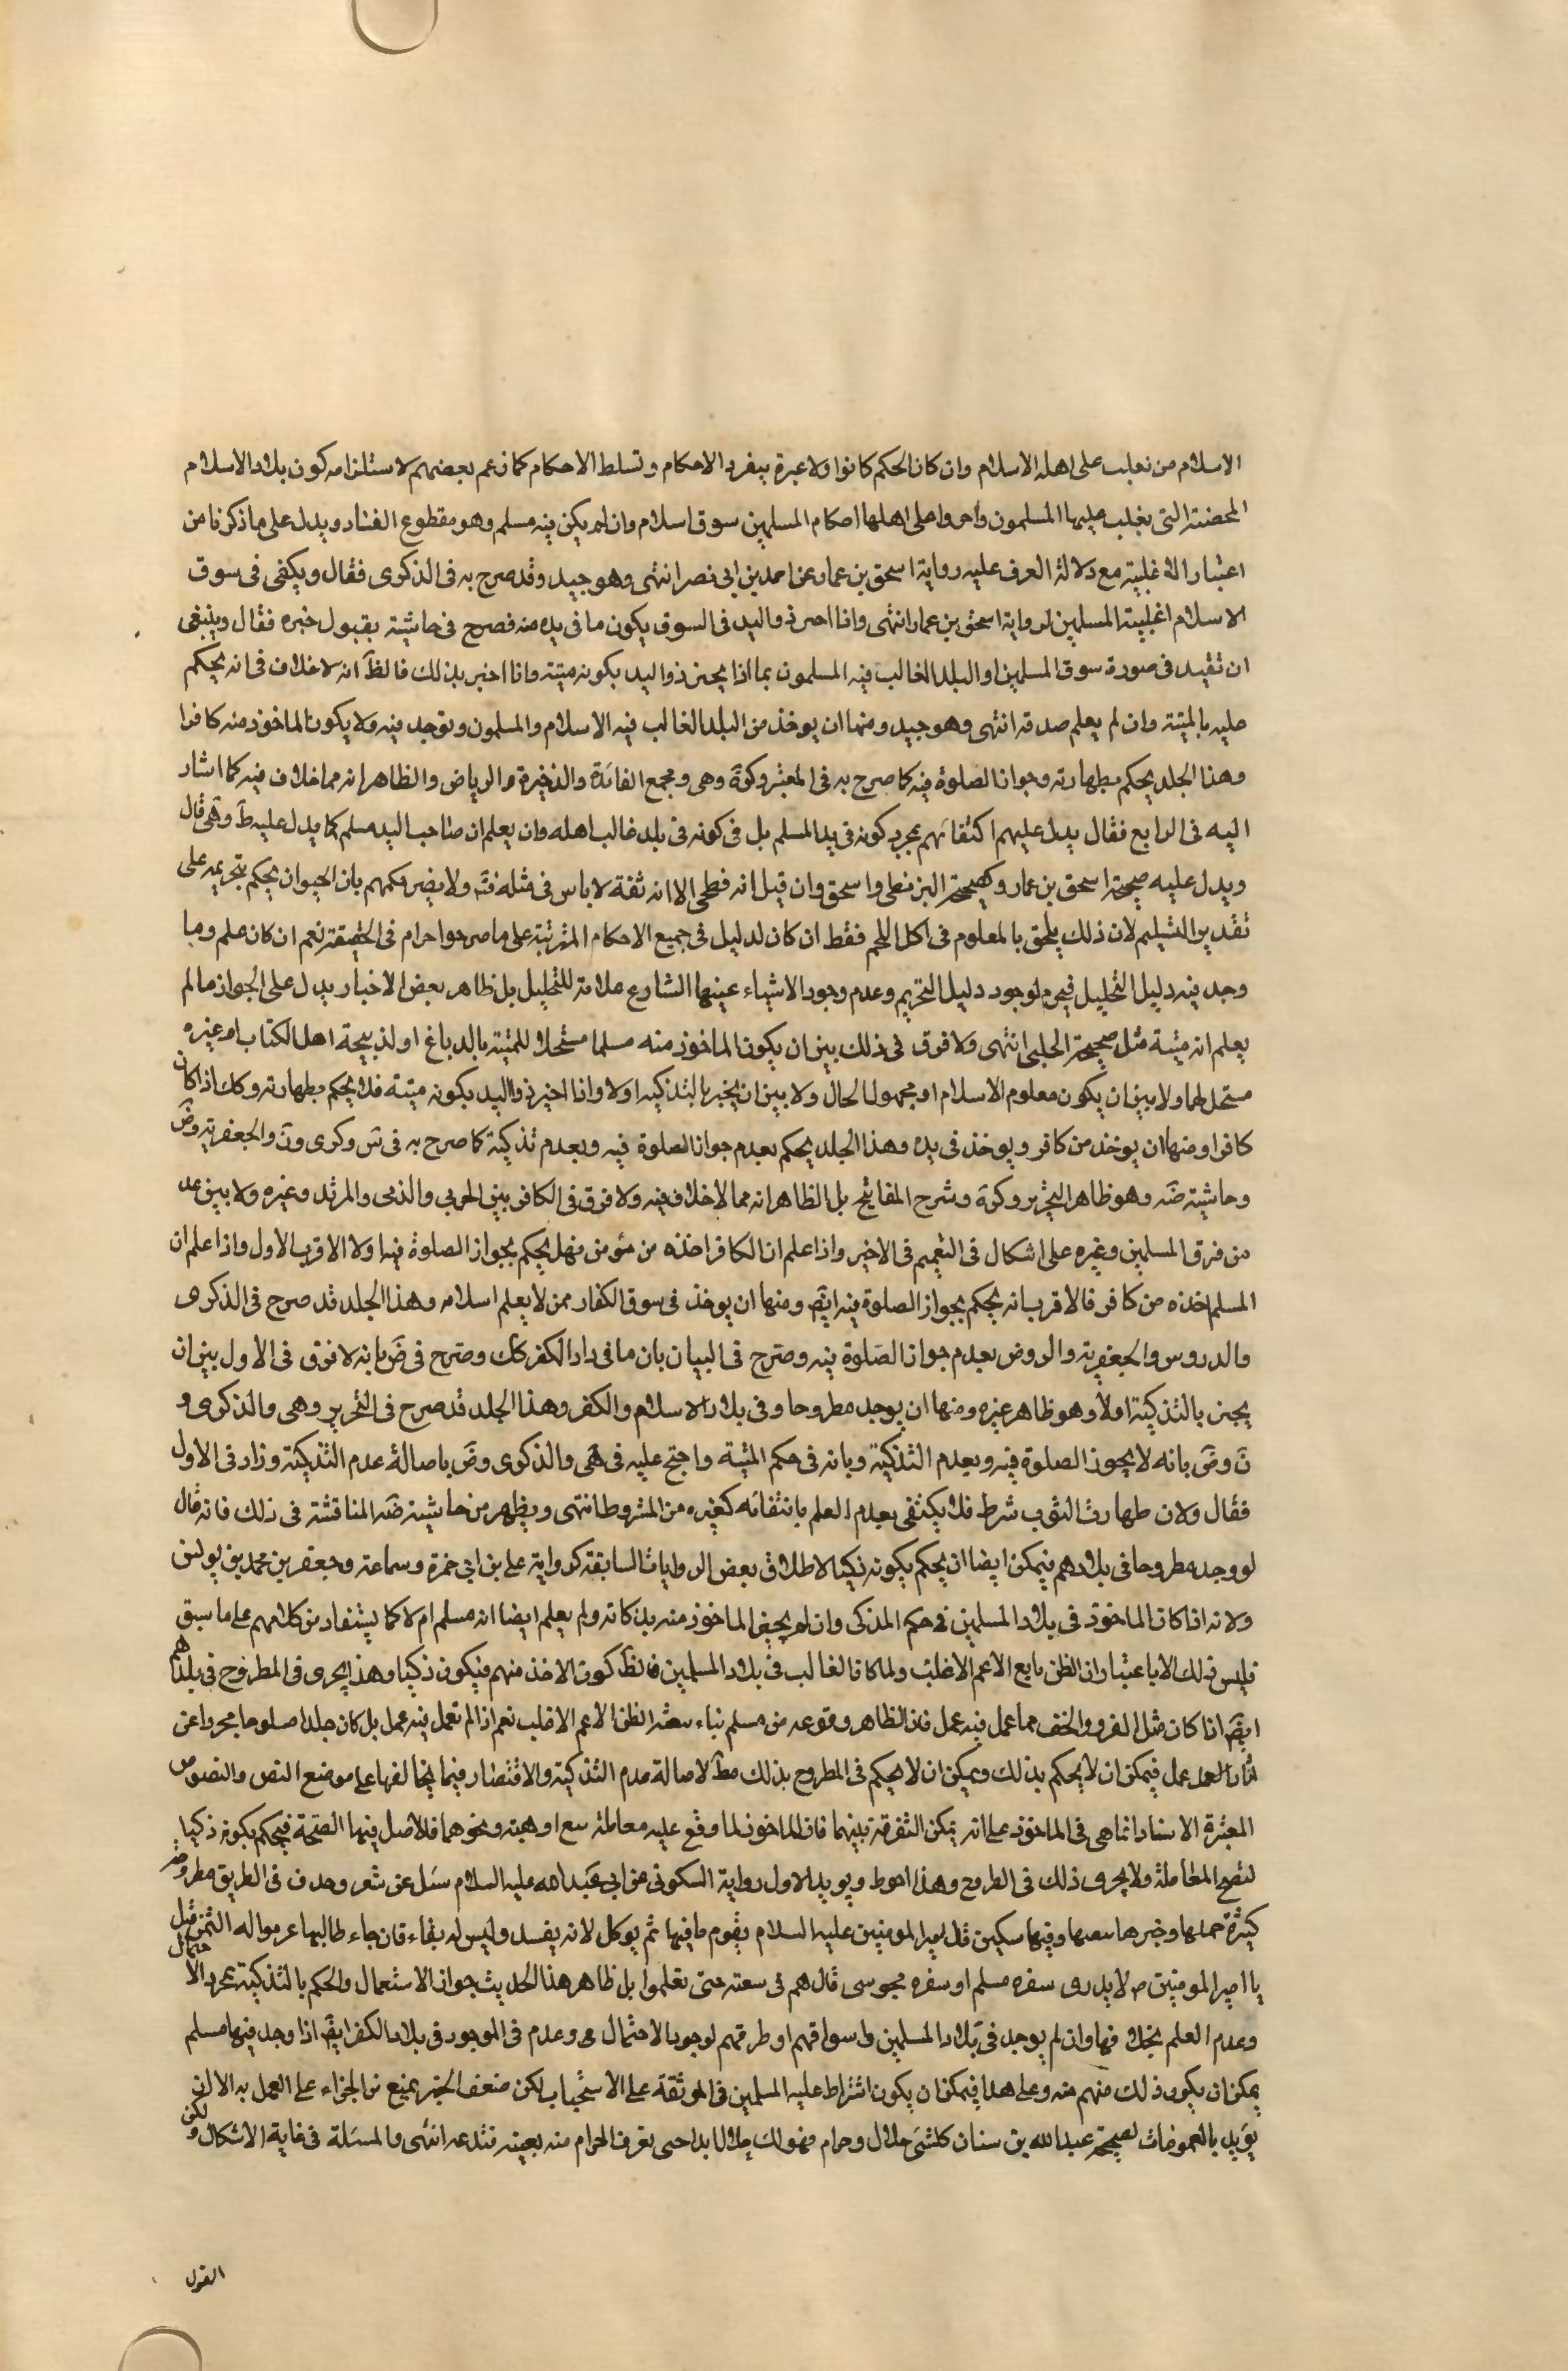 الاسلام من تغلب على اهله الاسلام وان كان الحكم كانوا ولا عبرة بمفرد الاحكام وتسلط الاحكام كما زعم بعضهم لاستلزامه كون بلاد الاسلام
المحضته التى يغلب عليها المسلمون واجروا على اهلها احكام المسلمين سوق اسلام وان لم يكن فيه مسلم وهو مقطوع الفساد ويدل على ما ذكرنا من
اعتبار الاغلبية مع دلالة العرف عليه رواية اسحق بن عمار عن احمد بن ابى نصر انتهى وهو جيد وقد صرح به فى الذكرى فقال ويكفى فى سوق
الاسلام اغلبية المسلمين لرواية اسحق بن عمار انتهى واذا اخبر ذو اليد فى السوق بكون ما فى يده منه فصرح فى حاشيته بقبول خبره فقال وينبغى
ان تقيد فى صورة سوق المسلمين او البلد الغالب فيه المسلمون بما اذا يخبر ذو اليد بكونه ميتة واذا اخبر بذلك فالظ انه لا خلاف فى انه يحكم
عليه بالميتة وان لم يعلم صدقه انتهى وهو جيد ومنها ان يوخذ من البلد الغالب فيه الاسلام والمسلمون وتوجد فيه ولا يكون الماخوذ منه كافرا
وهذا الجلد يحكم بطهارته وجواز الصلوة فيه كما صرح به فى المعتبر وكرة وهى ومجمع الفائدة والذخيرة والرياض والظاهر انه مما خلاف فيه كما اشار
اليه فى الرابع فقال يدل عليهم اكتفائهم بمجرد كونه فى يد المسلم بل فى كونه فى بلد غالب اهله وان يعلم ان صاحب اليد مسلم كما يدل عليه ط وهى قال
ويدل عليه صحيحة اسحق بن عمار وكصحيحة البزنطى واسحق وان قيل انه فطحى الا انه ثقة لا باس فى مثله فته ولا يضر حكمهم بان الحيوان يحكم بتحريمه على
تقدير التسليم لان ذلك يلحق بالمعلوم فى اكل اللحم فقط ان كان لدليل فى جميع الاحكام المترتبة على ما صرحوا حرام فى الحقيقة نعم ان كان علم وما
وجد فيه دليل التحليل فيحرم لوجود دليل التحريم وعدم وجود الاشياء عينها الشارع علامة للتحليل بل ظاهر بعض الاخبار يدل على الجواز ما لم
يعلم انه ميتة مثل صحيحة الحلبى انتهى ولا فرق فى ذلك بين ان يكون الماخوذ منه مسلما مستحلا للميتة بالدباغ او لذبيحة اهل الكتاب او غيره
مستحل لهما ولا بين ان يكون معلوم الاسلام او مجهول الحال ولا بين ان يخبر بالتذكية او لا واذا اخبر ذو اليد بكونه ميتة فلا يحكم بطهارته وكك اذا كان
كافرا ومنها ان يوخذ من كافر ويوخذ فى يده وهذا الجلد يحكم بعدم جواز الصلوة فيه وبعدم تذكية كما صرح به فى س وكرى ون والجعفرية وض
وحاشيته ضه وهو ظاهر التحرير وكرة وشرح المفاتيح بل الظاهر انه مما لا خلاف فيه ولا فرق فى الكافر بين الحربى والذمى والمرتد وغيره ولا بين عد
من فرق المسلمين وغيره على اشكال فى التعميم فى الاخير واذا علم ان الكافر اخذه من مؤمن فهل يحكم بجواز الصلوة فيه او لا الاقرب الاول واذا علم ان
المسلم اخذه من كافر فالاقرب انه يحكم بجواز الصلوة فيه ايض ومنها ان يوخذ فى سوق الكفار ممن لا يعلم اسلامه وهذا الجلد قد صرح فى الذكرى
والدروس والجعفرية والروض بعدم جواز الصلوة فيه وصرح فى البيان بان ما فى دار الكفر كك وصرح فى ض بانه لا فرق فى الاول بين ان
يخبر بالتذكية او لا وهو ظاهر غيره ومنها ان يوجد مطروحا وفى بلاد الاسلام والكفر وهذا الجلد قد صرح فى التحرير وهى والذكرى و
ن وض بانه لا يجوز الصلوة فيه وبعدم التذكية وبانه فى حكم الميتة واحتج عليه فى هى والذكرى وض باصالة عدم التذكية وزاد فى الاول
فقال ولان طهارة الثوب شرط فلا يكتفى بعدم العلم بانتفائه كغيره من المشروط انتهى ويظهر من حاشيته ضه المناقشة فى ذلك فانه قال
لو وجد مطروحا فى بلادهم فيمكن ايضا ان يحكم بكونه ذكيا لاطلاق بعض الروايات السابقة كرواية على بن ابى حمزة وسماعة وجعفر بن محمد بن يونس
ولانه اذا كان الماخوذ فى بلاد المسلمين فى حكم المذكى وان لم يخبر الماخوذ منه بذكاته ولم يعلم ايضا انه مسلم ام لا كما يستفاد من كلامهم على ما سبق
فليس ذلك الا باعتبار ان الظن تابع الاعم الاغلب ولما كان الغالب فى بلاد المسلمين فالظ كون الاخذ منهم فيكون ذكيا وهذا يجرى فى المطروح فى بلادهم
ايض اذا كان مثل الفرو والخف مما عمل فيه عمل فان الظاهر وقوعه من مسلم بناء الظن الاعم الاغلب نعم اذا لم تعمل فيه عمل بل كان جلدا مسلوخا مجردا عن
اثار العمل عمل فيمكن ان لا يحكم بذلك ويمكن ان لا يحكم فى المطروح بذلك مط لاصالة عدم التذكية والاقتصار فيما يخالفها على موضع النص والنصوص
المعتبرة الاسناد انما هى فى الماخوذ على انه يمكن التفرقة بينهما فان الماخوذ لما وقع عليه معاملة بيع او هبة ونحوهما فالاصل فيها الصحة فيحكم بكونه ذكيا
لتصح المعاملة ولا يجرى ذلك فى المطروح وهذا احوط ويويد الاول رواية السكونى عن ابى عبد الله عليه السلام سئل عن سفر وجدت فى الطريق مطروحة
كثيرة حملها وخبزها وفيها سكين قال امير المومنين عليه السلام يقوم ما فيها ثم يوكل لانه يفسد وليس له بقاء فان جاء طالبها غرموا له الثمن قيل
يا امير المومنين ص لا يدرى سفره مسلم او سفره مجوسى قال هم فى سعته حتى تعلموا بل ظاهر هذا الحديث جواز الاستعمال والحكم بالتذكية بمجرد الاحتمال
وعدم العلم بخلافها وان لم يوجد فى بلاد المسلمين واسواقهم او طرقهم لوجود الاحتمال وعدم فى الموجود فى بلاد الكفر ايض اذا وجد فيها مسلم
يمكن ان يكون ذلك منهم منه وعلى هذا فيمكن ان يكون اشتراط عليه المسلمين فى الموثقة على الاستحباب لكن ضعف الخبر يمنع من الجزاء على العمل به الا ان
يويد بالعمومات لصحيحة عبد الله بن سنان كلشئ حلال وحرام فهو لك حلال ابدا حتى تعرف الحرام منه بعينه فتدعه انتهى والمسئلة فى غاية الاشكال ولكن
القول